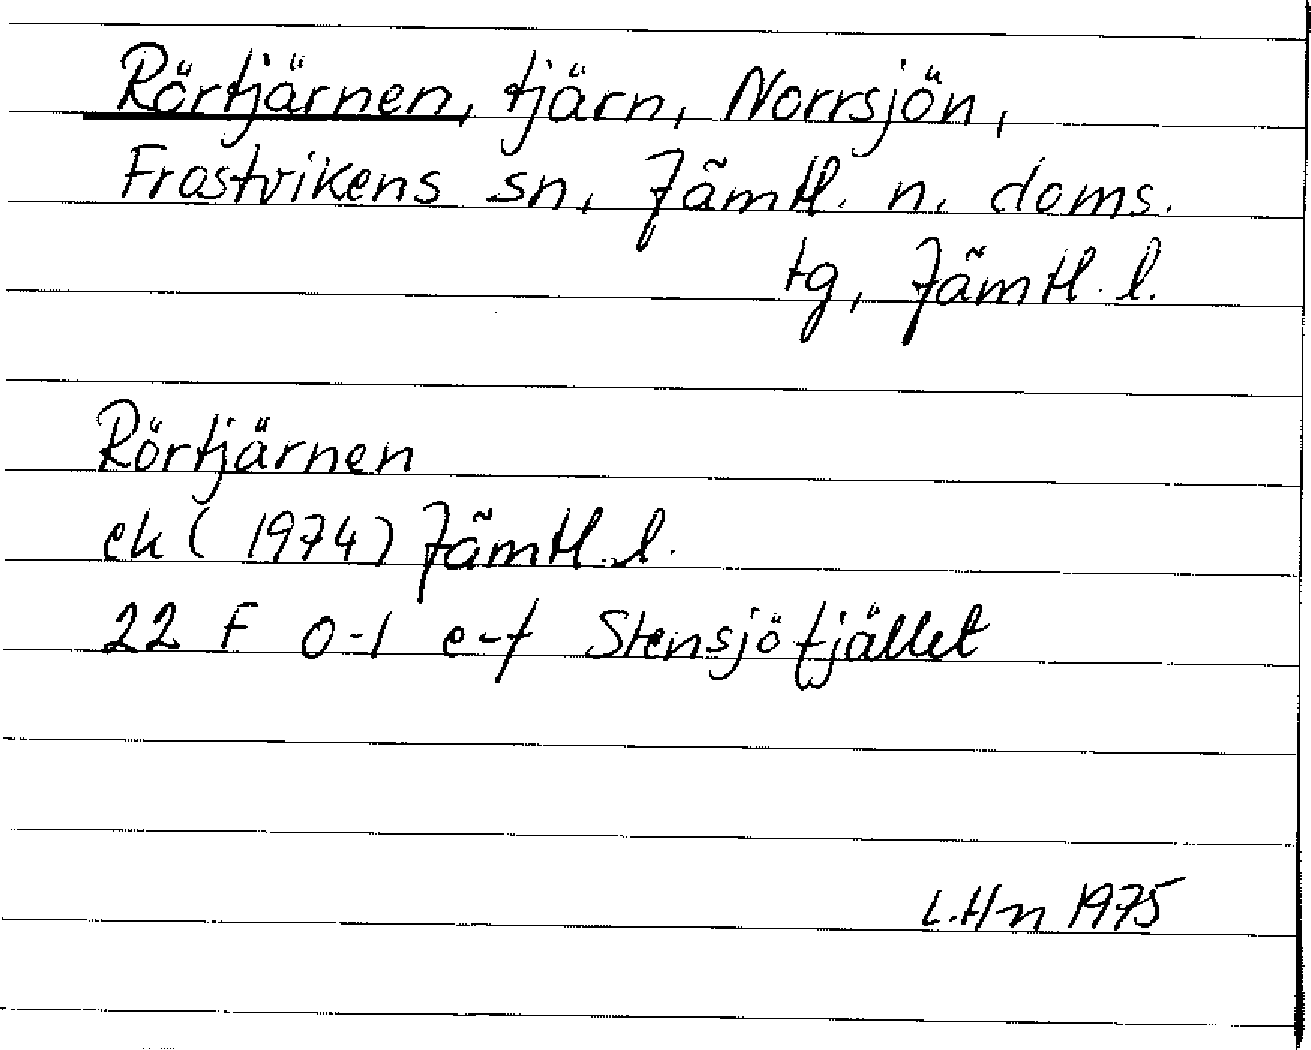 Rörtjärnen, tjärn, Norrsjön,
Frostvikens sn, Jämtl. n. doms.
tg, Jämtl. l.
Rörtjärnen
ek (1974) Jämtl. l.
22 F 0-1 e-f Stensjöfjället
L.Hn 1975